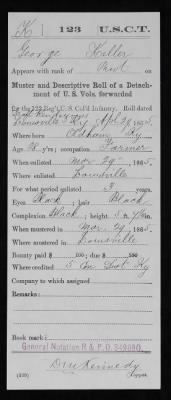 K 123 U.S.C.T.
George Hiller
Appears with rank of Pvt on
Muster and Descriptive Roll of a Detach-
ment of U. S. Vols. forwarded
for the 123 Reg't U. S. Col'd Infantry. Roll dated
Louisville Ky Apl 29, 1865.
Where born Oldham Ky
Age 18 y'rs; occupation Farmer
When enlisted Mar 29, 1865.
Where enlisted Louisville
For what period enlisted 3 years.
Eyes Black; hair Black
Complexion Black; height 5 ft. in.
When mustered in Mar 29, 1865.
Where mustered in Louisville
Bounty paid $ 100; due $ 100
Where credited 5 Con Dist Ky
Company to which assigned
Remarks:
Book mark:
General Notation R & P O
D W Kennedy
(339) Copyist.